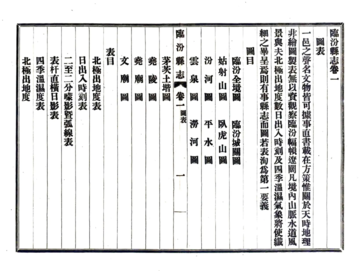 臨汾縣志卷一
圖表
一邑之聲名文物皆可據事直書載在方策惟關於天時地理
非繪圖製表無以資觀察臨汾幅幀遼闊凡境內山脈水道風
景與夫北極出地度數日出入時刻及四季溫濕氣象將使纖
細之畢呈焉即有事縣志而圖若表洵爲第一要義
圖目
臨汾全境圖 臨汾城關圖
姑射山圖 臥虎山圖
汾河圖 平水圖
雲泉圖 澇河圖
臨汾縣志 卷一 圖表 一
茅茨土堦圖
堯陵圖
堯廟圖
文廟圖
表目
北極出地度表
日出入時刻表
二至二分曚影暨弧線表
表杆直橫日影表
四季溫濕度表
北極出地度